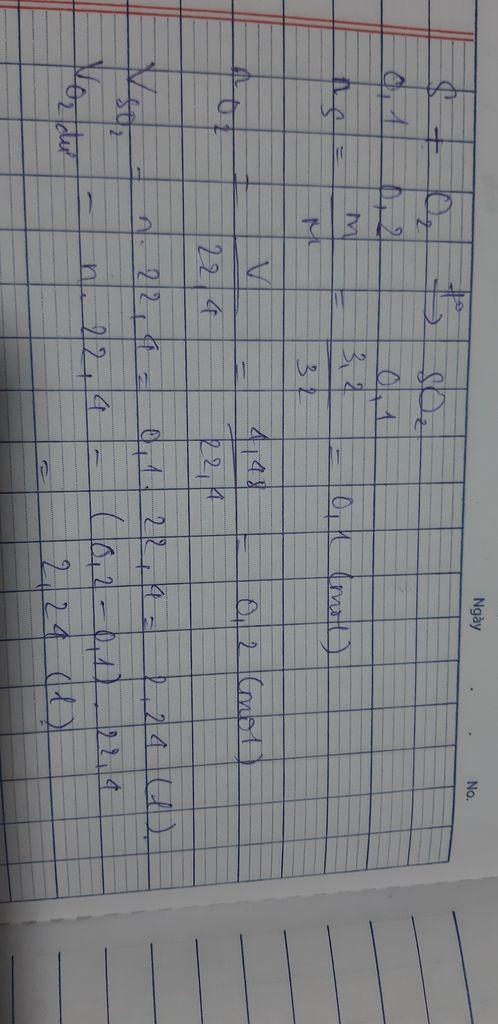 Ngày No.
S + O₂ t°→ SO₂
0,1 0,2 0,1
nS = m/M = 3,2/32 = 0,1 (mol)
nO₂ = V/22,4 = 4,48/22,4 = 0,2 (mol)
VSO₂ = n. 22,4 = 0,1. 22,4 = 2,24 (l).
VO₂ dư = n. 22,4 = (0,2 - 0,1). 22,4
= 2,24 (l)